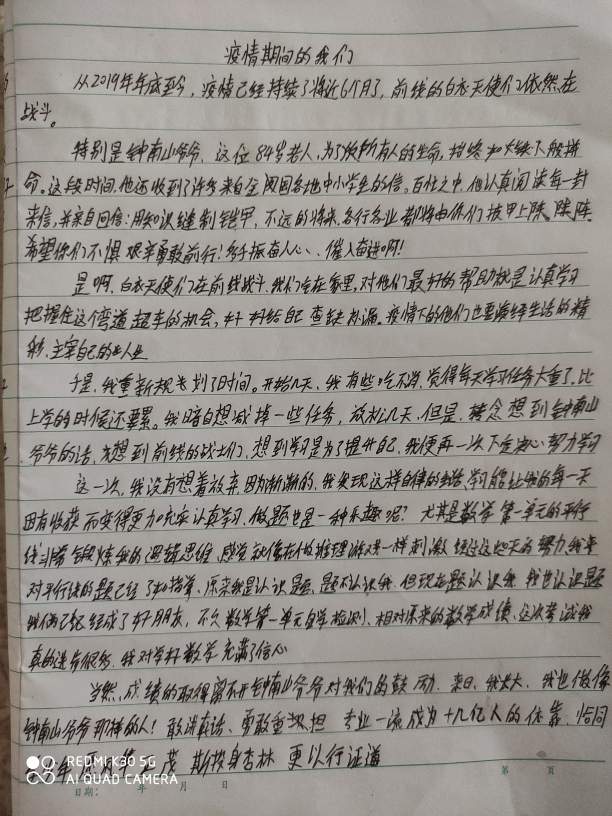 疫情期间的我们
从2019年年底至今，疫情已经持续了将近6个月了，前线的白衣天使们依然在
战斗。
特别是钟南山爷爷，这位84岁老人，为了所有人的生命，拼
命。这段时间，他还收到了许多来自全国各地中小学生的信，百忙之中，他认真阅读每一封
来信，并亲自回信：用知识缝制铠甲，不远的将来，各行各业都将由你们披甲上阵
希望你们不惧艰辛勇敢前行！多振奋人心、催人奋进啊！
是啊，白衣天使们在前线战斗，我们宅在家里，对他们最好的帮助就是认真学习
把握住这个弯道超车的机会，好好给自己查缺补漏。疫情下的他们也要演绎生活的精
彩，主宰自己的人生
于是，我重新规划了时间。开始几天，我有些吃不消，觉得每天学习任务太重了，比
上学的时候还要累。我暗自想减掉一些任务，放松几天，但是，转念想到钟南山
爷爷的话，想到前线的战士们，想到学习是为了提升自己，我便再一次下定决心努力学习
这一次，我没有想着放弃，因为渐渐的，我发现这样自律的学习能让我的每一天
因有收获而变得更加充实，认真学习，做题也是一种乐趣呢？尤其是数学第一单元的平行
线习惯锻炼我的逻辑思维，感觉就像在做推理游戏一样刺激，经过这些天的努力，我
对平行线的题已经了如指掌，原来我是认识题，题不认识我，但现在题认识我，我也认识题
我俩已经成了好朋友，不久数学第一单元自学检测，相对原来的数学成绩，这次考试我
真的进步很多，我对学好数学充满了信心
当然，成绩的取得离不开钟南山爷爷对我们的鼓励，来日，我长大，我也做像
钟南山爷爷那样的人！敢讲真话、勇敢重担，专业一流成为十几亿人的依靠，恰同
茂 斯投身杏林 更以行证道
REDMI K30 5G
AI QUAD CAMERA
日期： 年 月 日
第 页